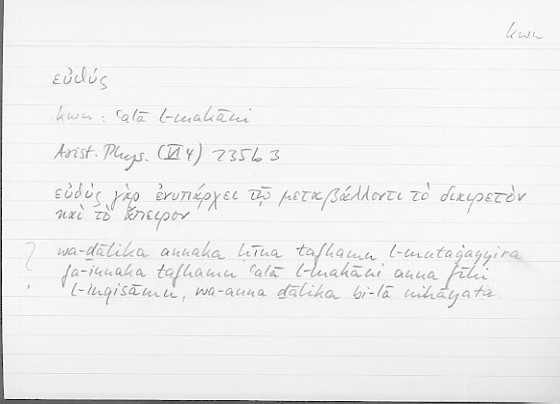 kwn
εὐθύς
kwn : ʿalā l-makāni
Arist. Phys. (VI 4) 235b3
εὐθὺς γὰρ ἐνυπάρχει τῷ μεταβάλλοντι τὸ διαιρετὸν
καὶ τὸ ἄπειρον
wa-ḏālika annaka ḥīna tafhamu l-mutaġayyira
fa-innaka tafhamu ʿalā l-makāni anna fīhi
l-inqisāma, wa-anna ḏālika bi-lā nihāyata